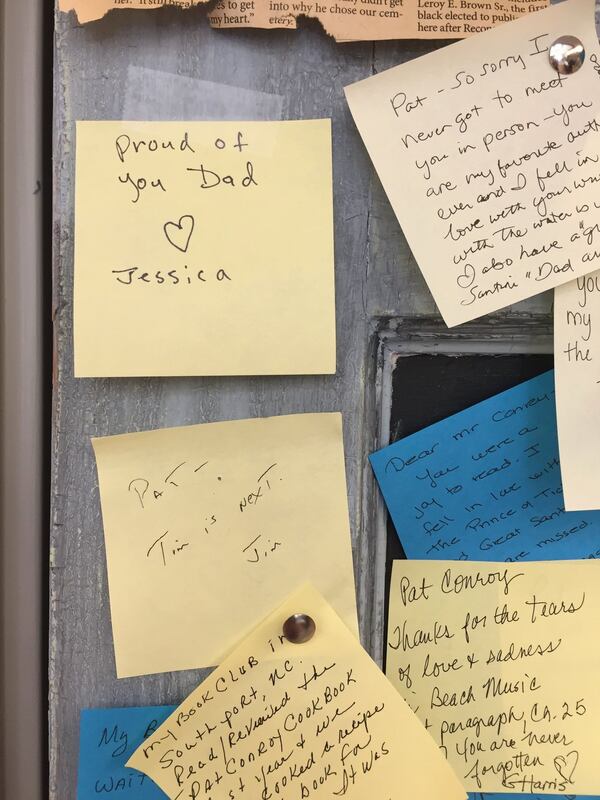 her. "It still breaks
es to get
my heart."
into why he chose our cem-
etery.
Leroy E. Brown Sr., the first
black elected to public
here after Recon
Proud of
you Dad
♡
Jessica
Pat - So sorry I
never got to meet
you in person - you
are my favorite auth
ever and I fell in
love with your wri
with the water is
I also have a "gr
Santini" Dad an
you
my
the
PAT -
Tim is next.
Jim
Dear Mr Conroy -
You were a
joy to read. I
fell in love with
the Prince of Tid
Great Sant
are missed.
Pat Conroy
Thanks for the tears
of love & sadness
Beach Music
paragraph, Ch. 25
You are never
forgotten ♡
SHarris
My
WAIT
My BOOK CLUB in
SOUTHPORT, NC.
Read/Revisited the
PAT CONROY COOKBOOK
st year & we
cooked a recipe
book for
It was